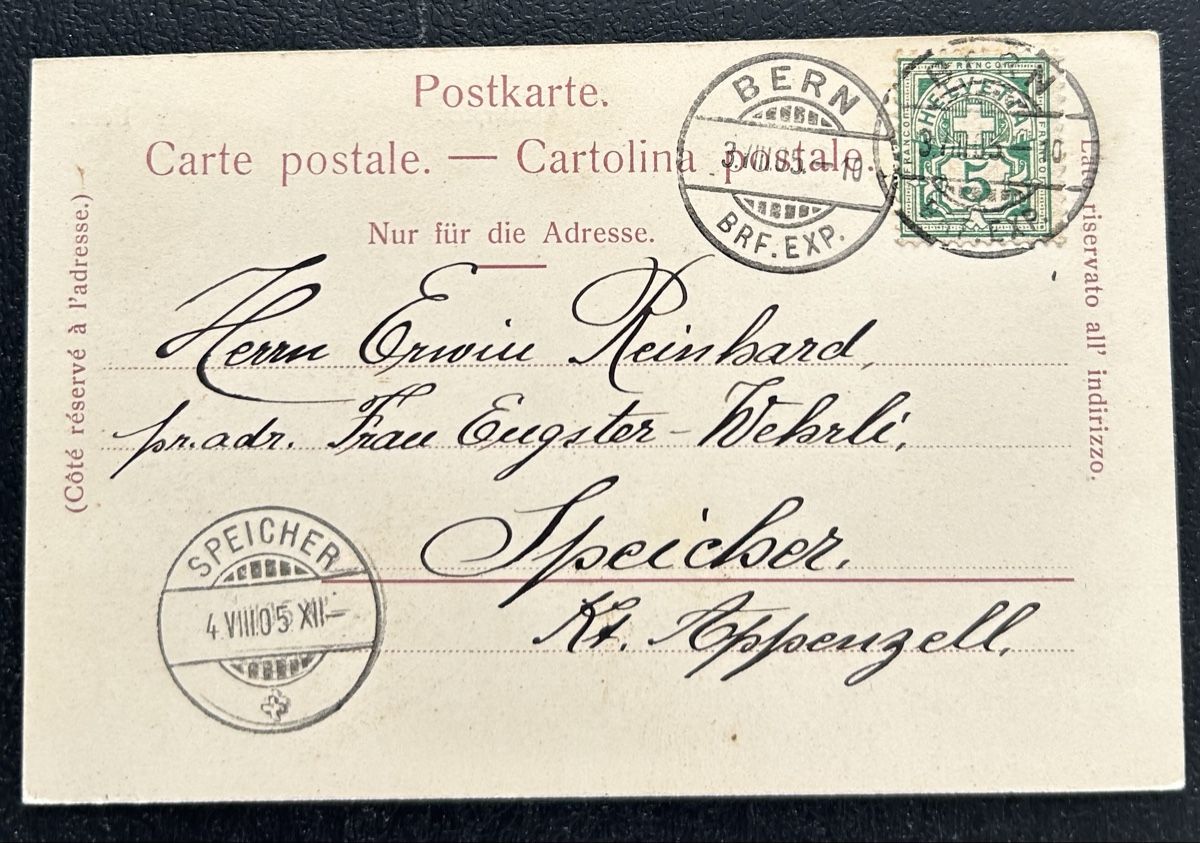 Postkarte.
Carte postale. — Cartolina postale.
Nur für die Adresse.
(Côté réservé à l'adresse.)
Lato riservato all' indirizzo.
BERN
3.VIII.05.-10
BRF. EXP.
FRANCO
HELVETIA
FRANCO
FRANCO
5
BERN
3.VIII.05.-10
BRF. EXP.
Herrn Erwin Reinhard,
pr. adr. Frau Eugster-Wehrli,
Speicher.
Kt. Appenzell.
SPEICHER
4.VIII.05 XII-